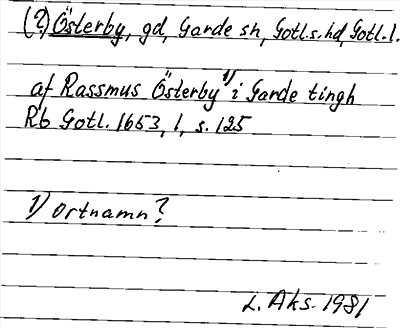 (?) Österby, gd, Garde sn, Gotl.s.hd, Gotl.l.
af Rassmus Österby 1) i Garde tingh
Rb Gotl. 1653, 1, s. 125
1) ortnamn?
L. Aks. 1981